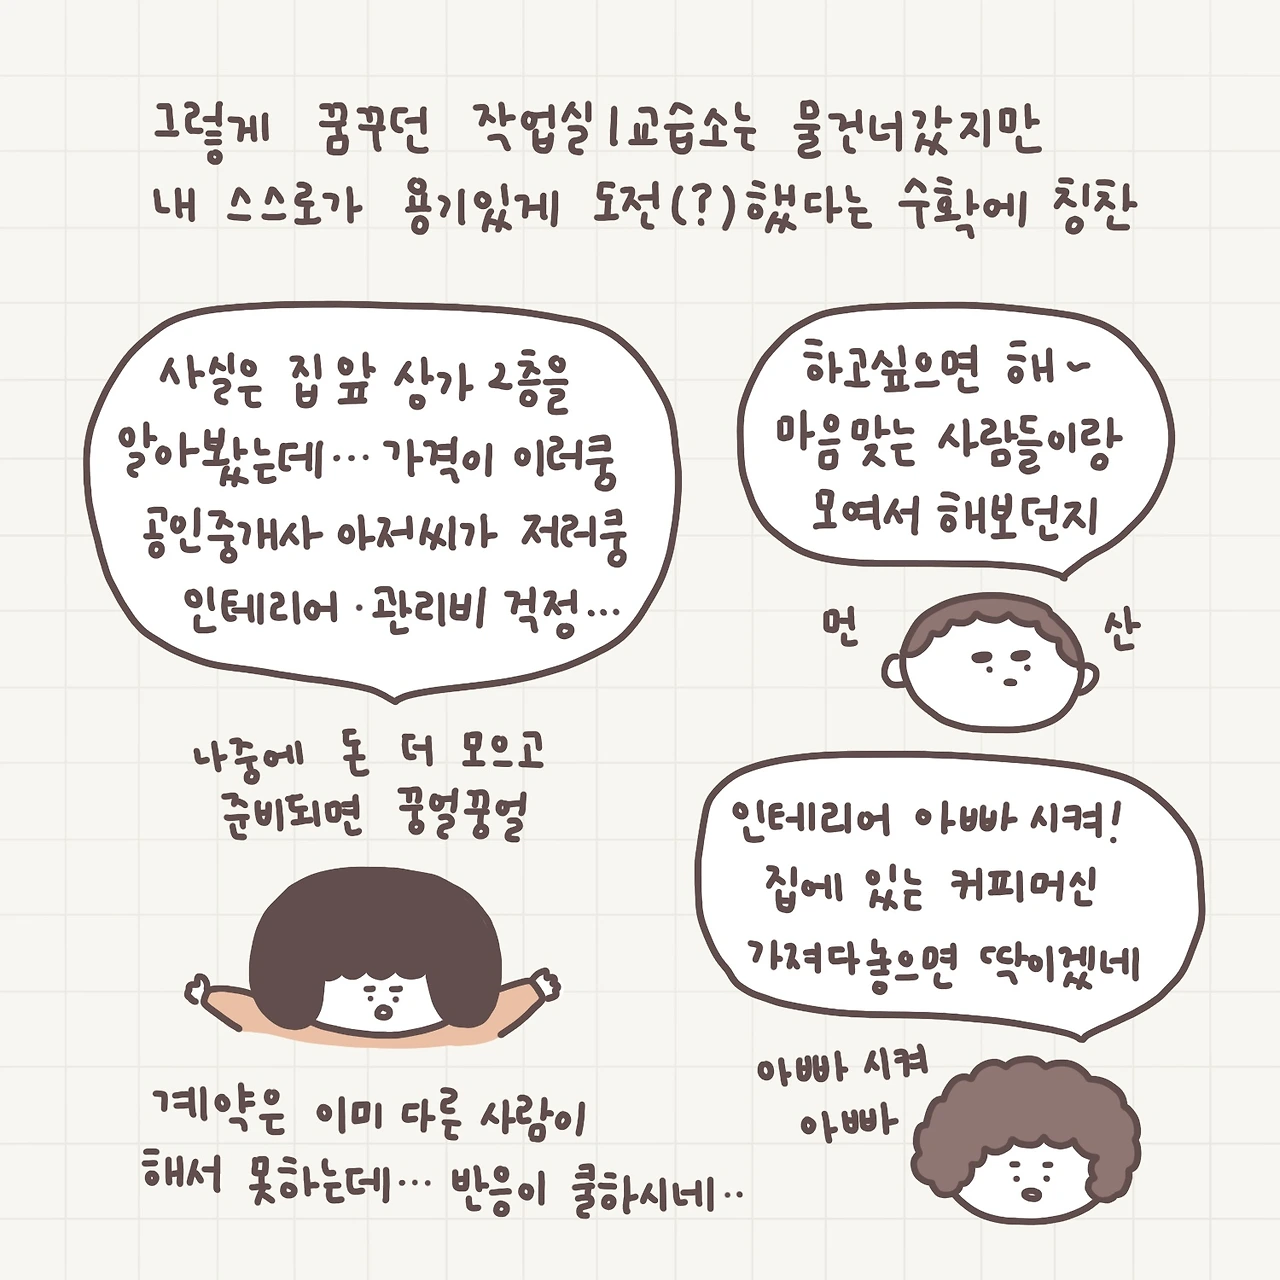 그렇게 꿈꾸던 작업실/교습소는 물건너갔지만
내 스스로가 용기있게 도전(?)했다는 수확에 칭찬
사실은 집 앞 상가 2층을
알아봤는데… 가격이 이러쿵
공인중개사 아저씨가 저러쿵
인테리어·관리비 걱정…
나중에 돈 더 모으고
준비되면 꿍얼꿍얼
계약은 이미 다른 사람이
해서 못하는데… 반응이 쿨하시네..
하고싶으면 해~
마음맞는 사람들이랑
모여서 해보던지
먼 산
인테리어 아빠 시켜!
집에 있는 커피머신
가져다놓으면 딱이겠네
아빠 시켜
아빠